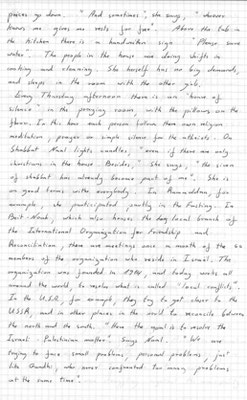 pieces go down. "And sometimes", she says, " whoever
knows me gives me rests for free". Above the tab in
the kitchen there is a handwritten sign: "Please save
water". The people in the house are doing shifts in
cooking and cleaning. She herself has no big demands,
and sleeps in the room with the other girls.
Every Thursday afternoon there is an "hour of
silence" in the praying room with the pillows on the
floor. In this hour each person follows their own religion
meditation, prayer or simple silence for the atheists. On
Shabbat Naul lights candles, "even if there are only
christians in the house. Besides," she says, "the siren
of shabbat has already become part of me". She is
on good terms with everybody. In Ramaddan, for
example, she participated partly in the fasting. In
Beit Noah, which also houses the local branch of
the International Organization for Friendship and
Reconciliation, there are meetings once a month of the 60
members of the organization who reside in Israel. The
organization was founded in 1914, and today works all
around the world, to resolve what is called "local conflicts".
In the U.S.A, for example, they try to get closer to the
USSR, and in other places in the world to reconcile between
the north and the south. "Here the goal is to resolve the
Israel - Palestinian matter". Says Naul. "We are
trying to face small problems, personal problems, just
like Gandhi, who never confronted too many problems
at the same time".